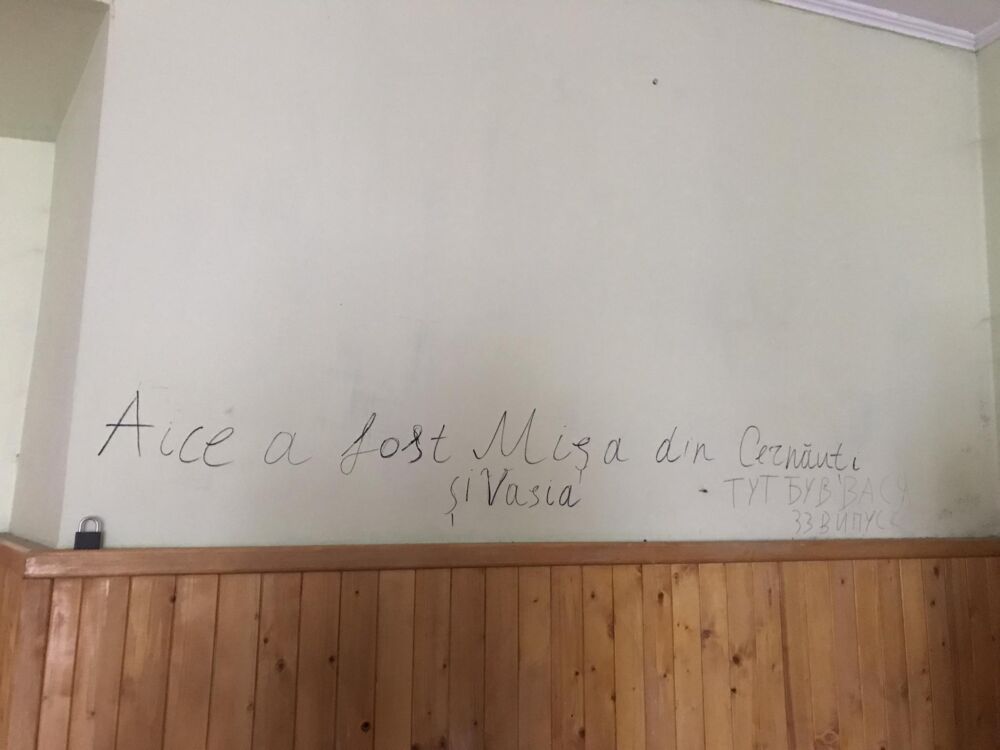 Aice a fost Mișa din Cernăuți
și Vasia
ТУТ БУВ ВАСЯ
33 ВИПУСК